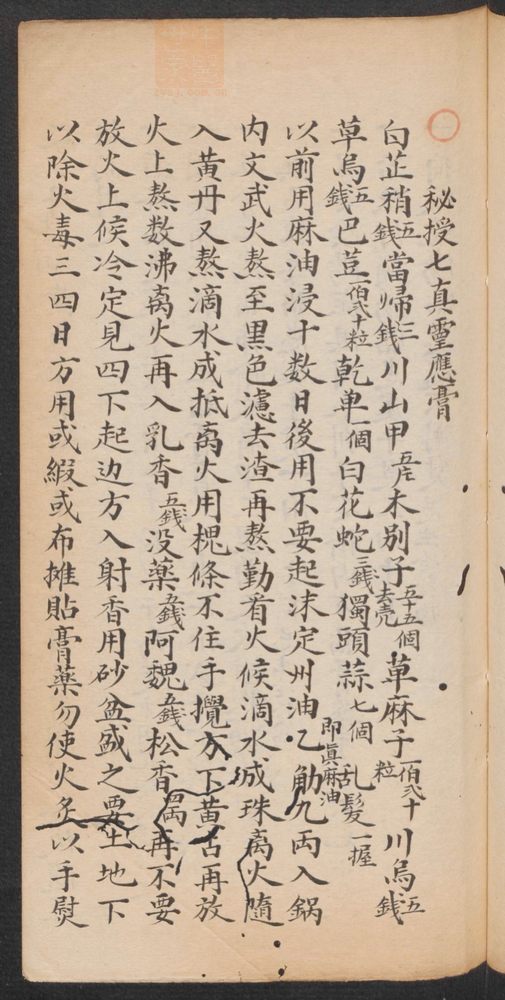 秘授七真灵應膏
白芷稍五錢當归三錢川山甲五片木別子五十五個去壳草麻子一佰弍十粒川烏五錢
草烏五錢巴荳一佰弍十粒乾单一個白花蛇三錢獨頭蒜七個乱髮一握
以前用麻油浸十数日後用不要起沫定州油即真麻油乙觔九両入鍋
内文武火熬至黒色濾去渣再熬勤看火候滴水成珠离火隨
入黄丹又熬滴水成抵离火用槐條不住手攪方下黄古再放
火上熬数沸离火再入乳香五錢没薬五錢阿魏五錢松香両再不要
放火上候冷定見四下起边方入射香用砂盆盛之要土地下
以除火毒三四日方用或緞或布攤貼膏薬勿使火炙以手熨